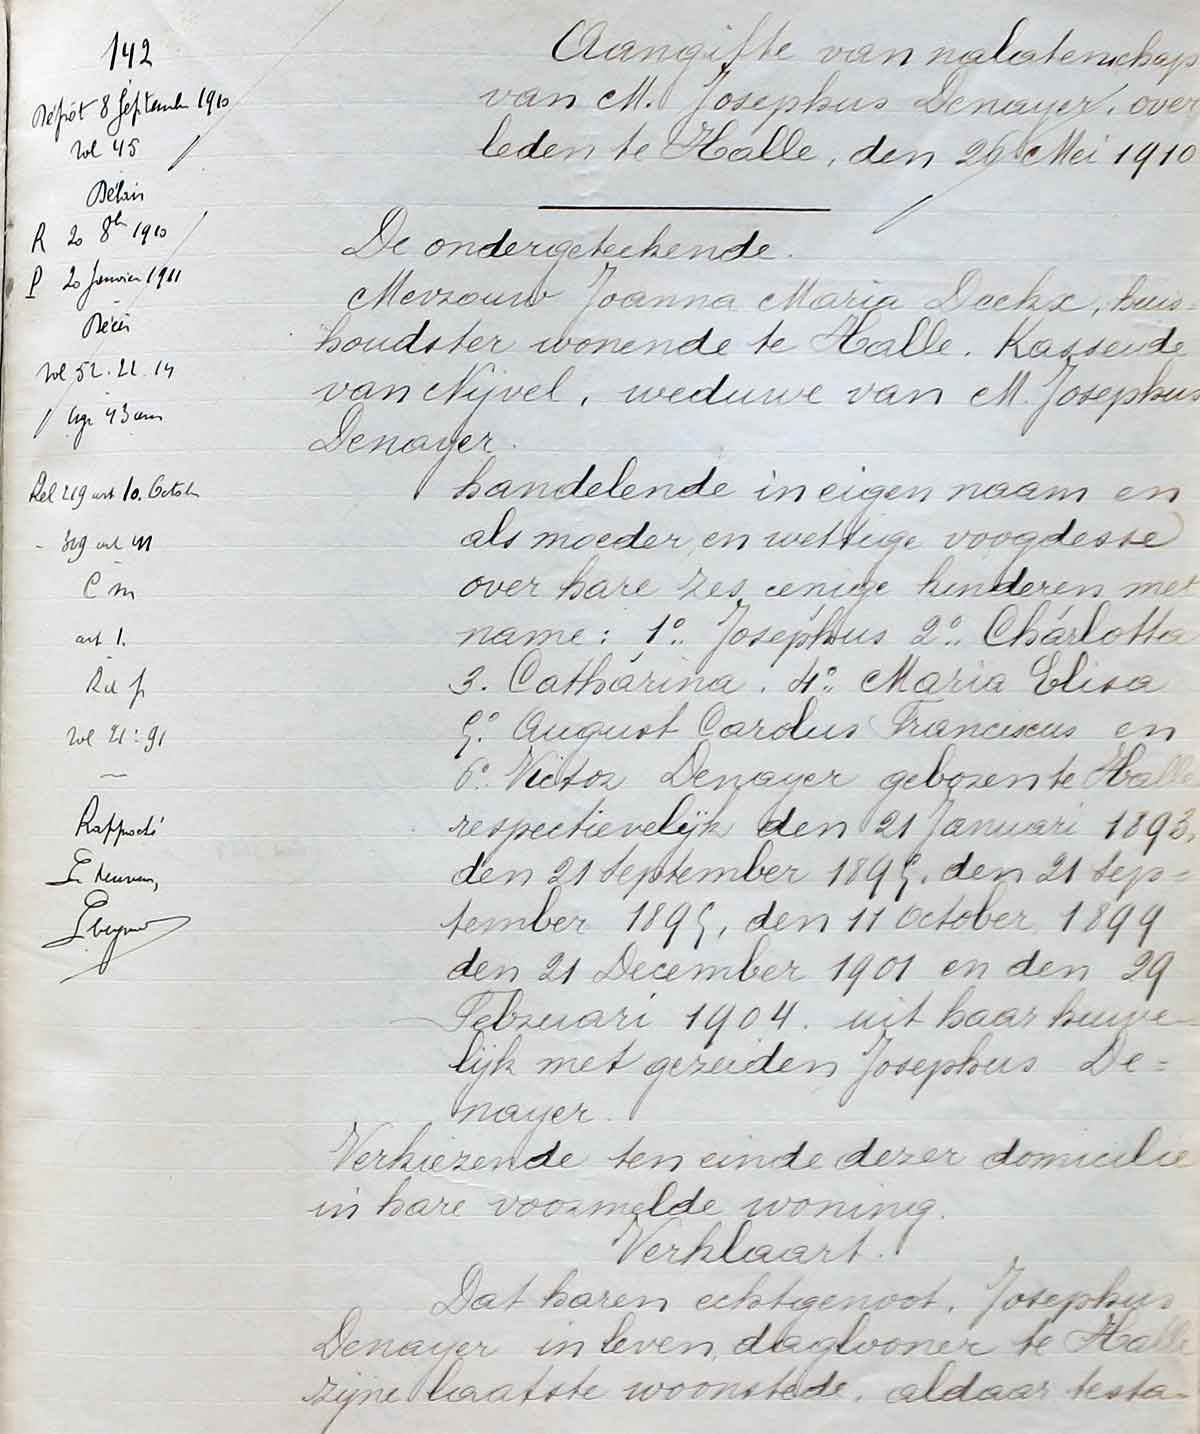 142
Dépôt 8 Septembre 1910
vol 45
Délais
R 20 8bre 1910
P 20 Janvier 1911
Décès
vol 52. 22. 14
âge 43 ans
Rel 219 art 10. Octobre
art
art 1.
vol 21: 91
Aangifte van nalatenschap
van M. Josephus Denayer, over
leden te Halle, den 26 Mei 1910
De ondergeteekende.
Mevrouw Joanna Maria Deckx, huis-
houdster wonende te Halle. Kasseide
van Nijvel, weduwe van M. Josephus
Denayer.
handelende in eigen naam en
als moeder en wettige voogdesse
over hare zes eenige kinderen met
name: 1º. Josephus 2º. Charlotta
3. Catharina. 4º. Maria Elisa
5º. August Carolus Franciscus en
6º. Victor Denayer geboren te Halle
respectievelijk den 21 Januari 1893,
den 21 September 1895, den 21 Sep=
tember 1895, den 11 October 1899
den 21 December 1901 en den 29
Februari 1904. uit haar huwe-
lijk met gezeiden Josephus De=
nayer.
Verkiezende ten einde dezer domicilie
in hare voormelde woning.
Verklaart.
Dat haren echtgenoot, Josephus
Denayer in leven dagloner te Halle
zijne laatste woonstede, aldaar testa-